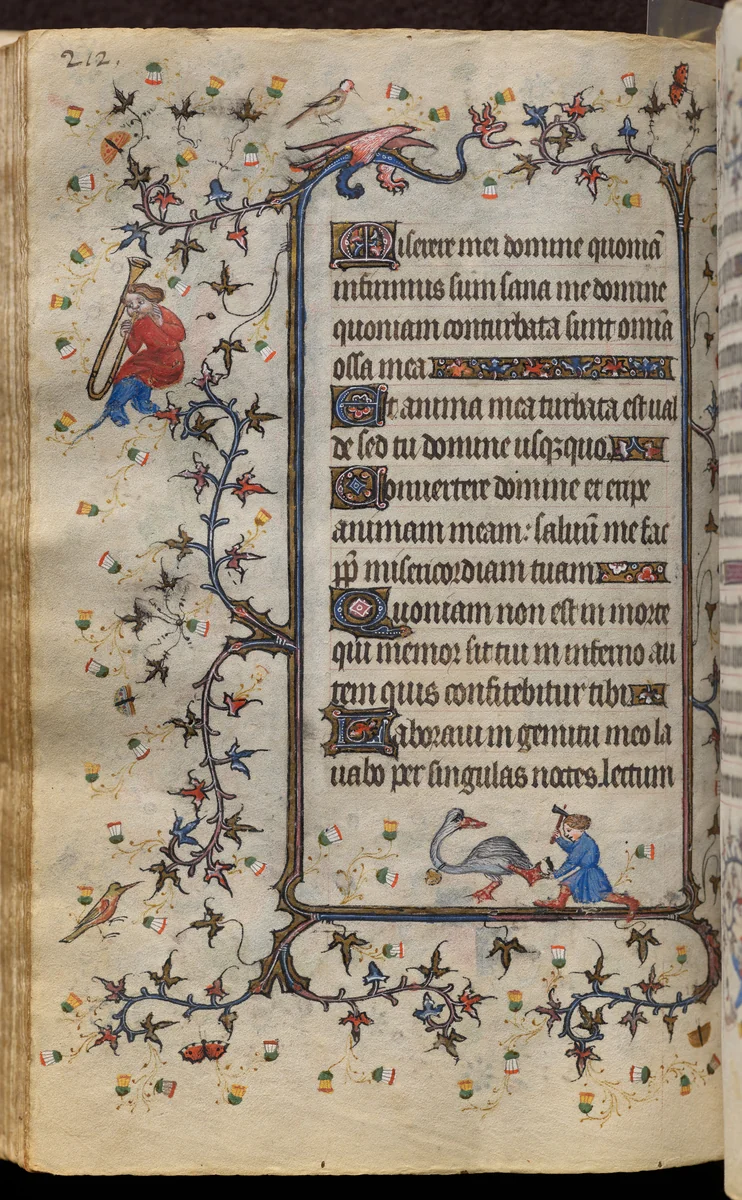 212.
Miserere mei domine quoniā
infirmus sum sana me domine
quoniam conturbata sunt omīa
ossa mea
Et anima mea turbata est ual
de sed tu domine usqꝫquo
Conuertere domine et eripe
animam meam: saluū me fac
pp̄ misericordiam tuam
Quoniam non est in morte
qui memor sit tui in inferno au
tem quis confitebitur tibi
Laboraui in gemitu meo la
uabo per singulas noctes. lectum